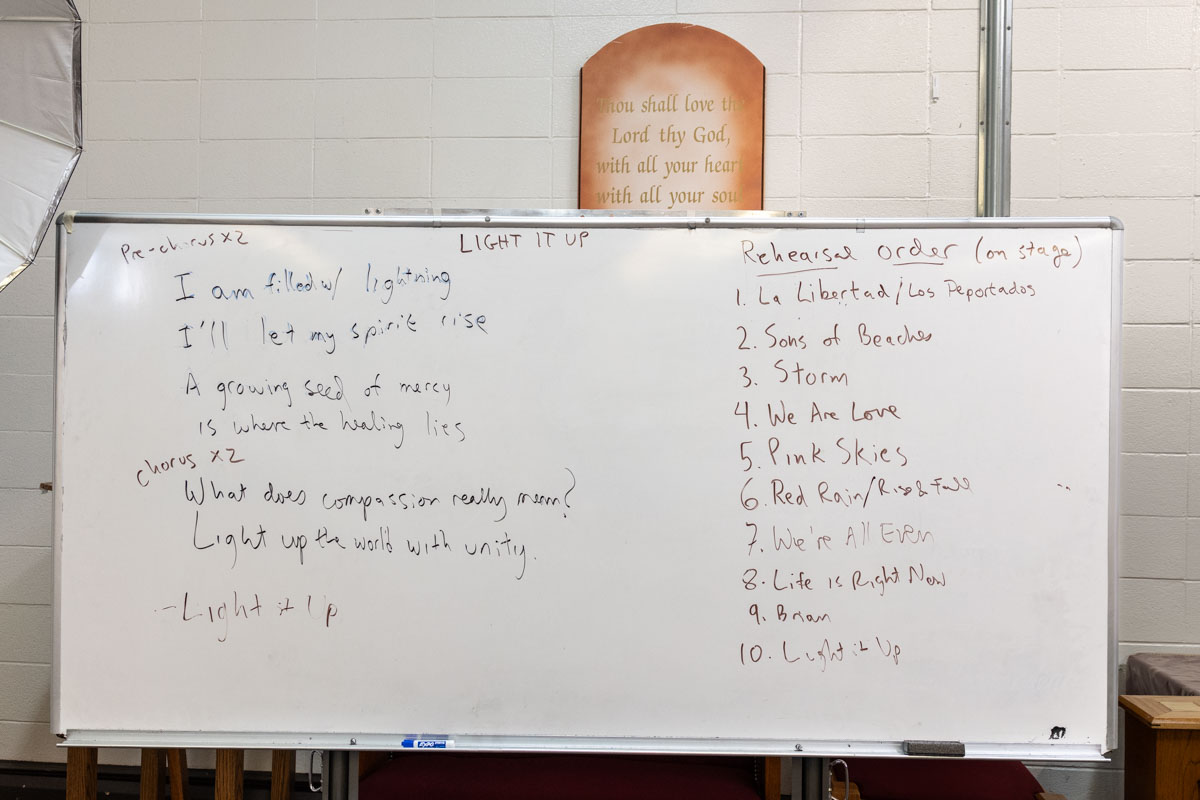 Thou shall love the
Lord thy God,
with all your heart
with all your soul
LIGHT IT UP
Pre-chorus x2
I am filled w/ lightning
I'll let my spirit rise
A growing seed of mercy
is where the healing lies
chorus x2
What does compassion really mean?
Light up the world with unity.
- Light it Up
Rehearsal order (on stage)
1. La Libertad/Los Deportados
2. Sons of Beaches
3. Storm
4. We Are Love
5. Pink Skies
6. Red Rain/Rise & Fall
7. We're All Even
8. Life is Right Now
9. Brian
10. Light it Up
EXPO